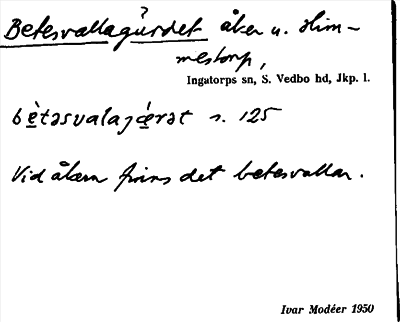 Betesvallagärdet åker u. Him-
mestorp,
Ingatorps sn, S. Vedbo hd, Jkp. l.
bètəsvalajǽrət s. 125
Vid åkern finns det betesvallar.
Ivar Modéer 1950